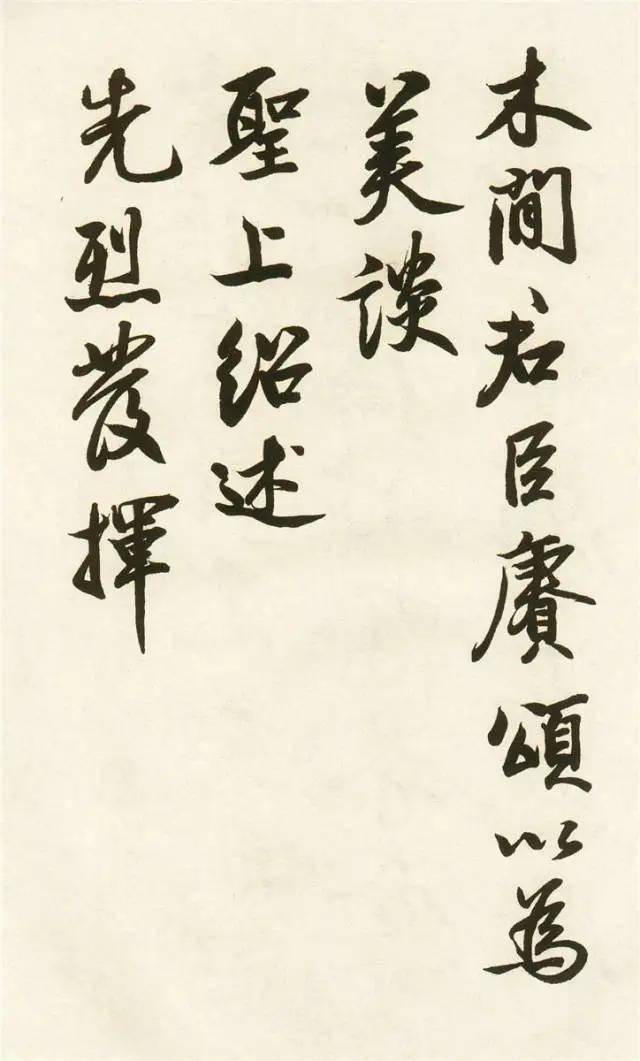 末間君臣賡頌以為
美談
聖上紹述
先烈發揮